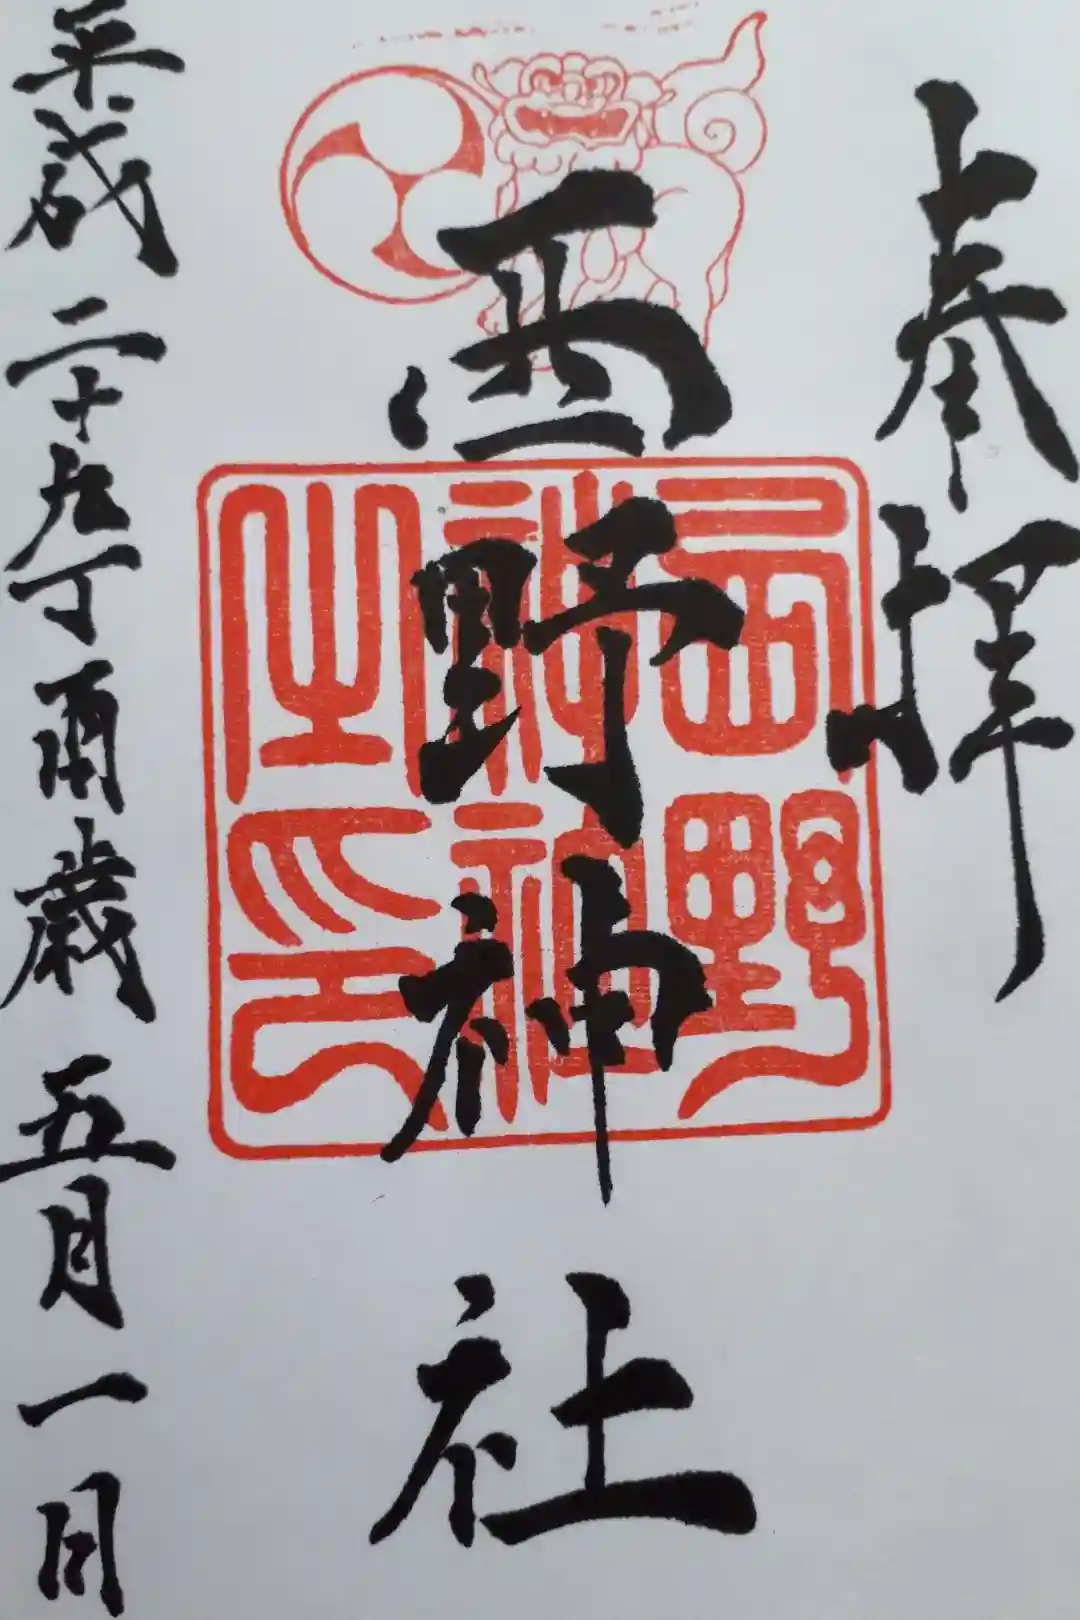 奉拝
西野神社
平成二十九丁酉歳 五月一日
西野
神社
之印